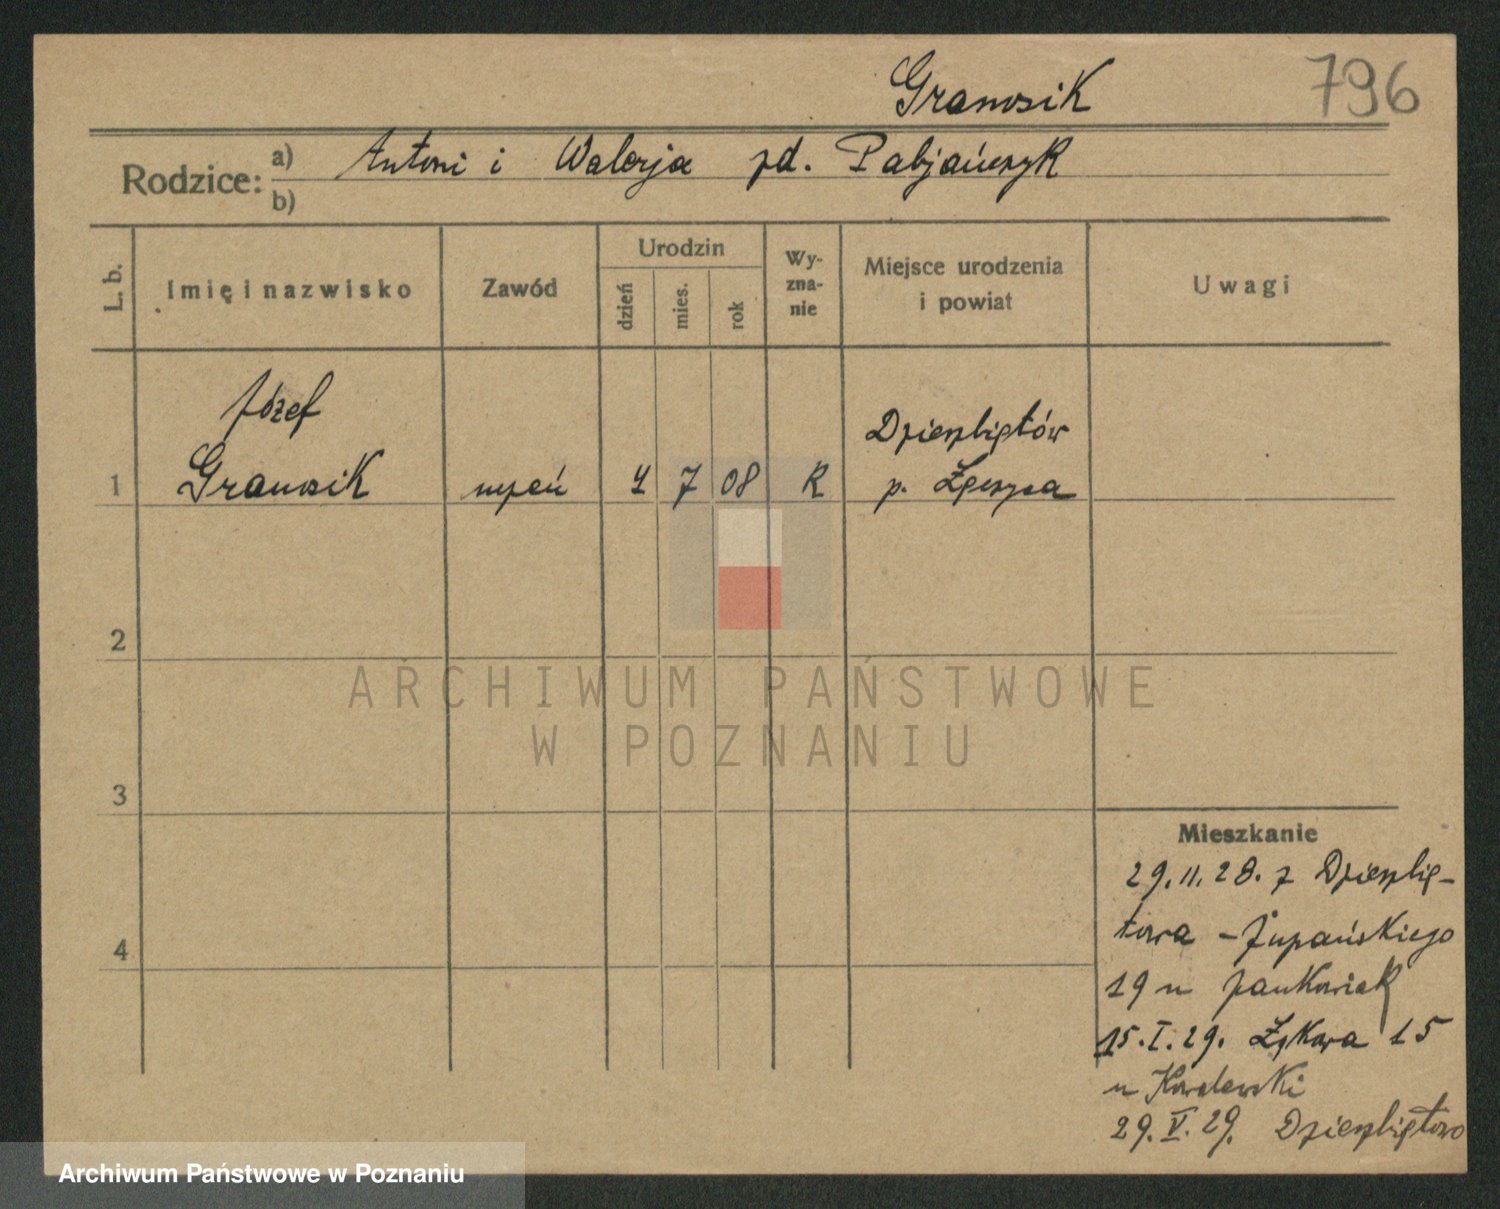 Granosik
796
Rodzice: a) Antoni i Walerja zd. Pabjańczyk
b)
L. b.
Imię i nazwisko
Zawód
Urodzin
dzień
mies.
rok
Wy-
zna-
nie
Miejsce urodzenia
i powiat
Uwagi
Józef
1 Granosik uczeń 4 7 08 R
Dzierzbiętów
p. Łęczyca
2
3
4
ARCHIWUM PAŃSTWOWE
W POZNANIU
Mieszkanie
29.11.28. z Dzierzbię-
towa - Żupańskiego
19 u Jankowiak
15.I.29. Łąkowa 15
u Kowalewski
29.V.29. Dzierzbiętowo
Archiwum Państwowe w Poznaniu